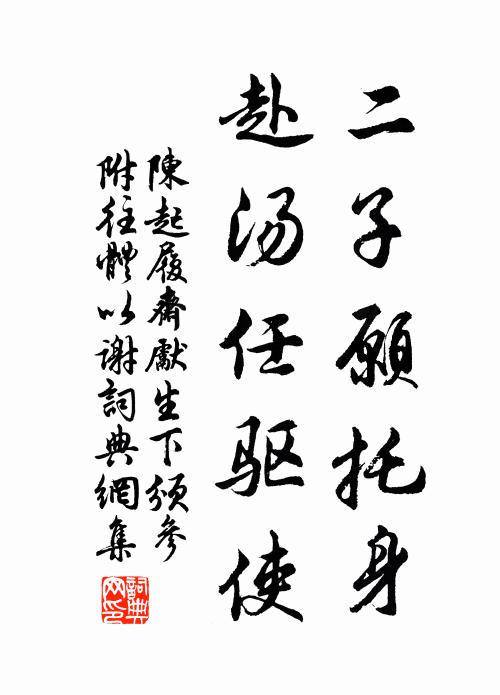 二子願托身
赴汤任驱使
陳起履齋獻生下頒參
附往體以谢詞典網集
詞典
网印